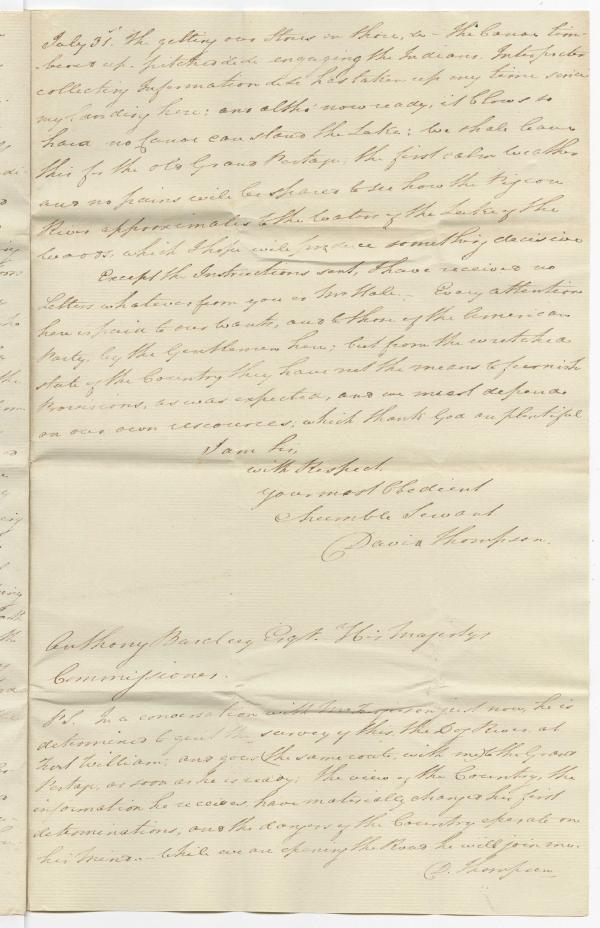 July 31st. The getting our Stores on shore, &c - the Canoe tim-
bered up - pitched &c &c engaging the Indians. Interpreter
collecting Information &c &c has taken up my time since
my landing here; and altho' now ready, it blows so
hard no Canoe can stand the Lake; we shall leave
this for the old Grand Portage, the first calm weather
and no pains will be spared to see how the Pigeon
River approximates to the Waters of the Lake of the
Woods, which I hope will produce something decisive
Except the Instructions sent, I have received no
Letters whatever from you or Mr Hale. - Every attention
here is paid to our Wants, and to those of the American
Party, by the Gentlemen here; but from the wretched
state of the Country they have not the means to furnish
Provisions, as was expected, and we must depend
on our own resources, which thank God are plentiful
I am Sir,
with Respect
your most Obedient
Humble Servant
David Thompson.
Anthony Barclay Esqr. His Majestys
Commissioner.
PS. In a conversation with Mr Ferguson just now, he is
determined to quit the survey of this, the Dog River at
Fort William; and goes the same route, with me to the Grand
Portage, as soon as he is ready; the view of the Country, the
information he receives, have materially changed his first
determinations, and the dangers of the Country operate on
his mind. - While we are opening the Road he will join me.
D. Thompson